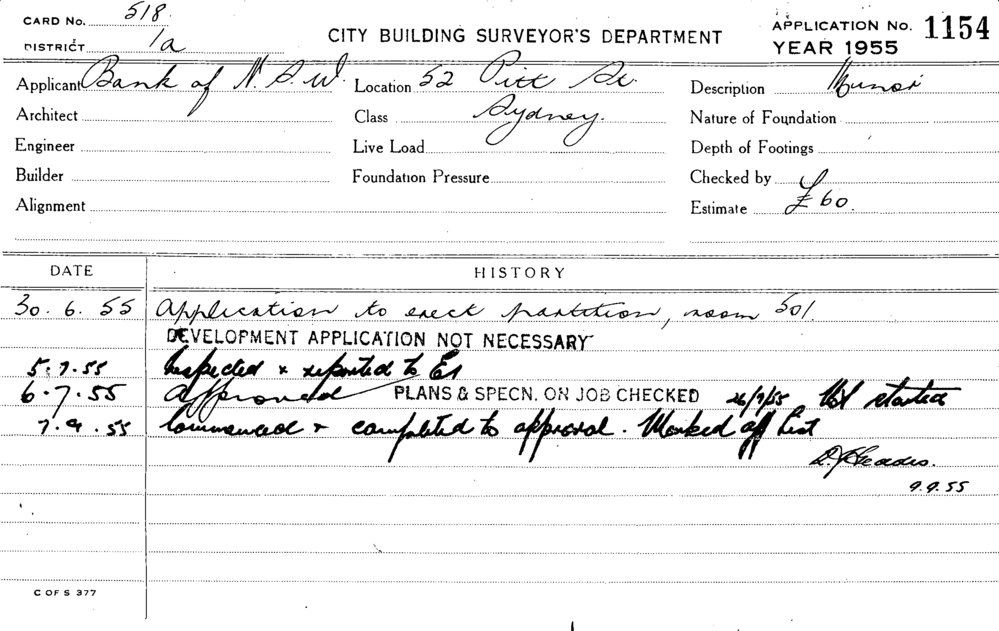 CARD No. 518.
DISTRICT 1a
CITY BUILDING SURVEYOR'S DEPARTMENT
APPLICATION No. 1154
YEAR 1955
Applicant Bank of N.S.W. Location 52 Pitt St. Description Minor
Architect Class Sydney. Nature of Foundation
Engineer Live Load Depth of Footings
Builder Foundation Pressure Checked by
Alignment Estimate £60.
DATE HISTORY
30.6.55 Application to erect partition, room 501.
DEVELOPMENT APPLICATION NOT NECESSARY
5.7.55 Inspected & reported to
6.7.55 Approved PLANS & SPECN. ON JOB CHECKED 26/7/55 Not started
7.9.55 Commenced & completed to approval. Marked off list
9.9.55
C OF S 377